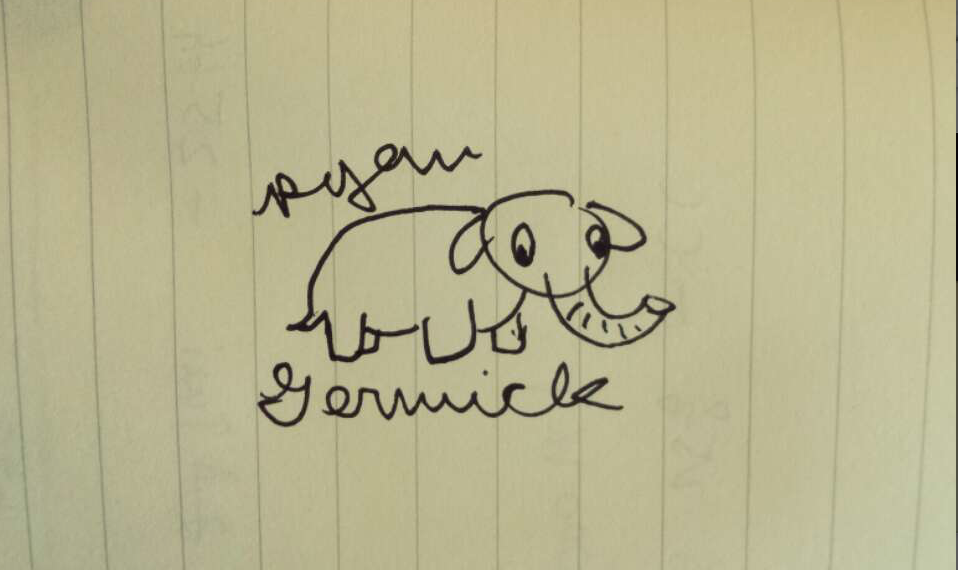 ryan
Germick